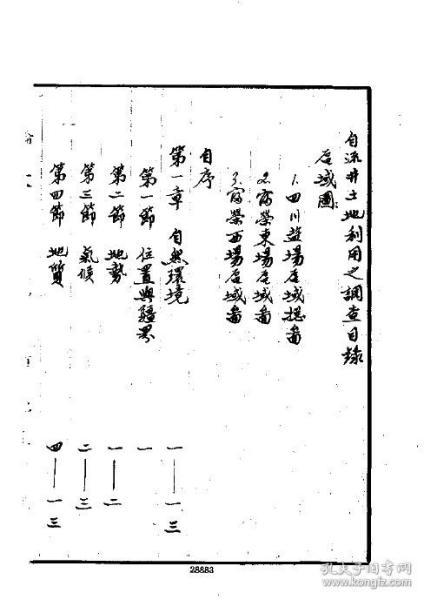 自流井土地利用之調查目錄
區域圖：
1.四川鹽場區域總圖
2.富榮東場區域圖
3.富榮西場區域圖
自序
第一章 自然環境 一——一三
第一節 位置與疆界 一
第二節 地勢 一——二
第三節 氣候 二——三
第四節 地質 四——一三
28883
孔夫子旧书网
www.kongfz.com